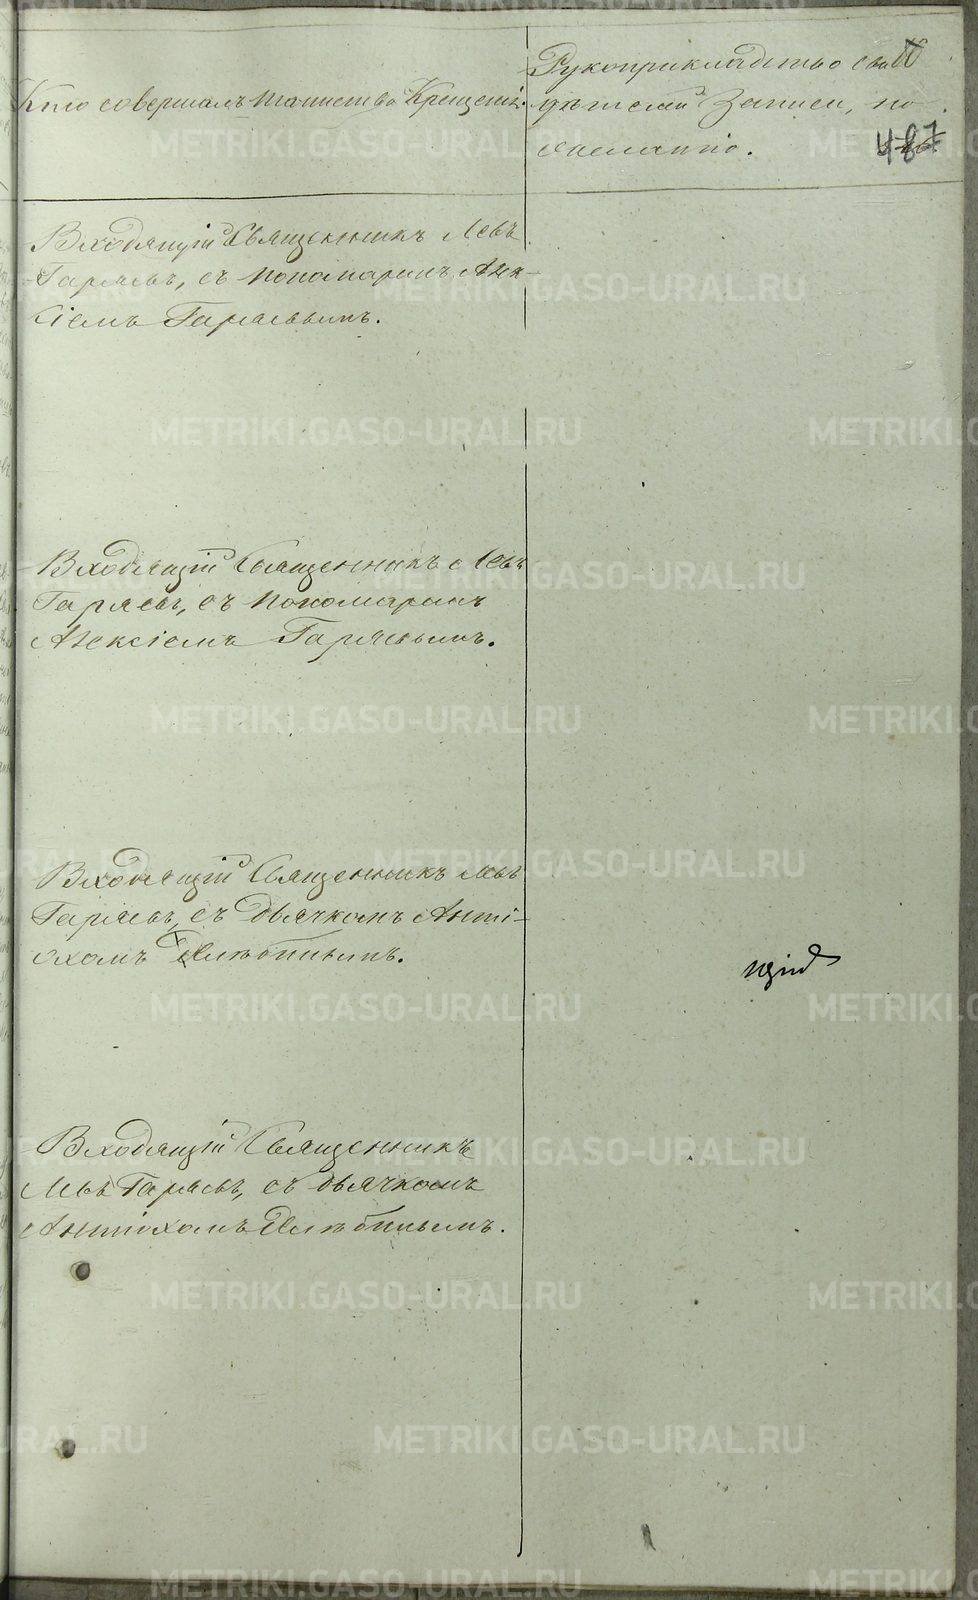 Кто совершалъ таинство Крещенія.
Рукоприкладство сви
дѣтелей записи, по
желанію.
487
Входящій Священникъ Левъ
Гаряевъ, съ пономаремъ Але-
ксіемъ Гаряевымъ.
Входящій Священникъ Левъ
Гаряевъ, съ пономаремъ
Алексіемъ Гаряевымъ.
Входящій Священникъ Левъ
Гаряевъ, съ дьячкомъ Анті-
охомъ
Входящій Священникъ
Левъ Гаряевъ, съ дьячкомъ
Антіохомъ
METRIKI.GASO-URAL.RU